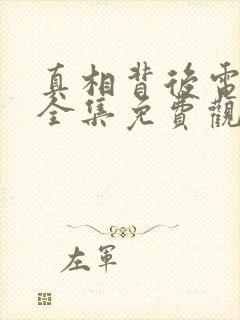 真相背後電
全集免費觀
左軍